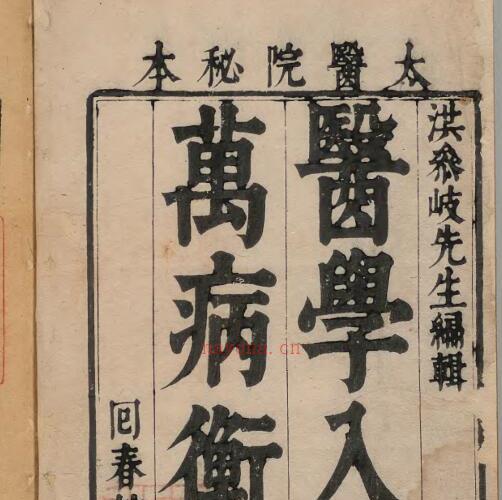 太醫院秘本
洪飛岐先生編輯
醫學入
萬病衡
回春
hanuna.cn